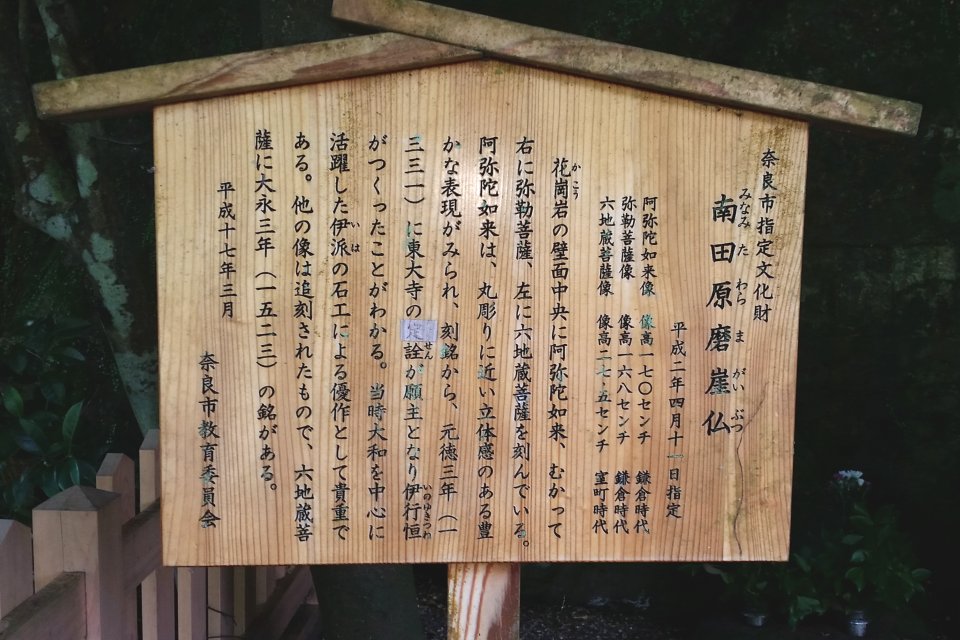 奈良市指定文化財
南田原磨崖仏
みなみ た わら ま がい ぶつ
平成二年四月十一日指定
阿弥陀如来像 像高一七〇センチ 鎌倉時代
弥勒菩薩像 像高一六八センチ 鎌倉時代
六地蔵菩薩像 像高二七・五センチ 室町時代
花崗岩の壁面中央に阿弥陀如来、むかって
かこう
右に弥勒菩薩、左に六地蔵菩薩を刻んでいる。
阿弥陀如来は、丸彫りに近い立体感のある豊
かな表現がみられ、刻銘から、元徳三年（一
三三一）に東大寺の定詮が願主となり伊行恒
せん いのゆきつね
がつくったことがわかる。当時大和を中心に
活躍した伊派の石工による優作として貴重で
いは
ある。他の像は追刻されたもので、六地蔵菩
薩に大永三年（一五二三）の銘がある。
平成十七年三月
奈良市教育委員会